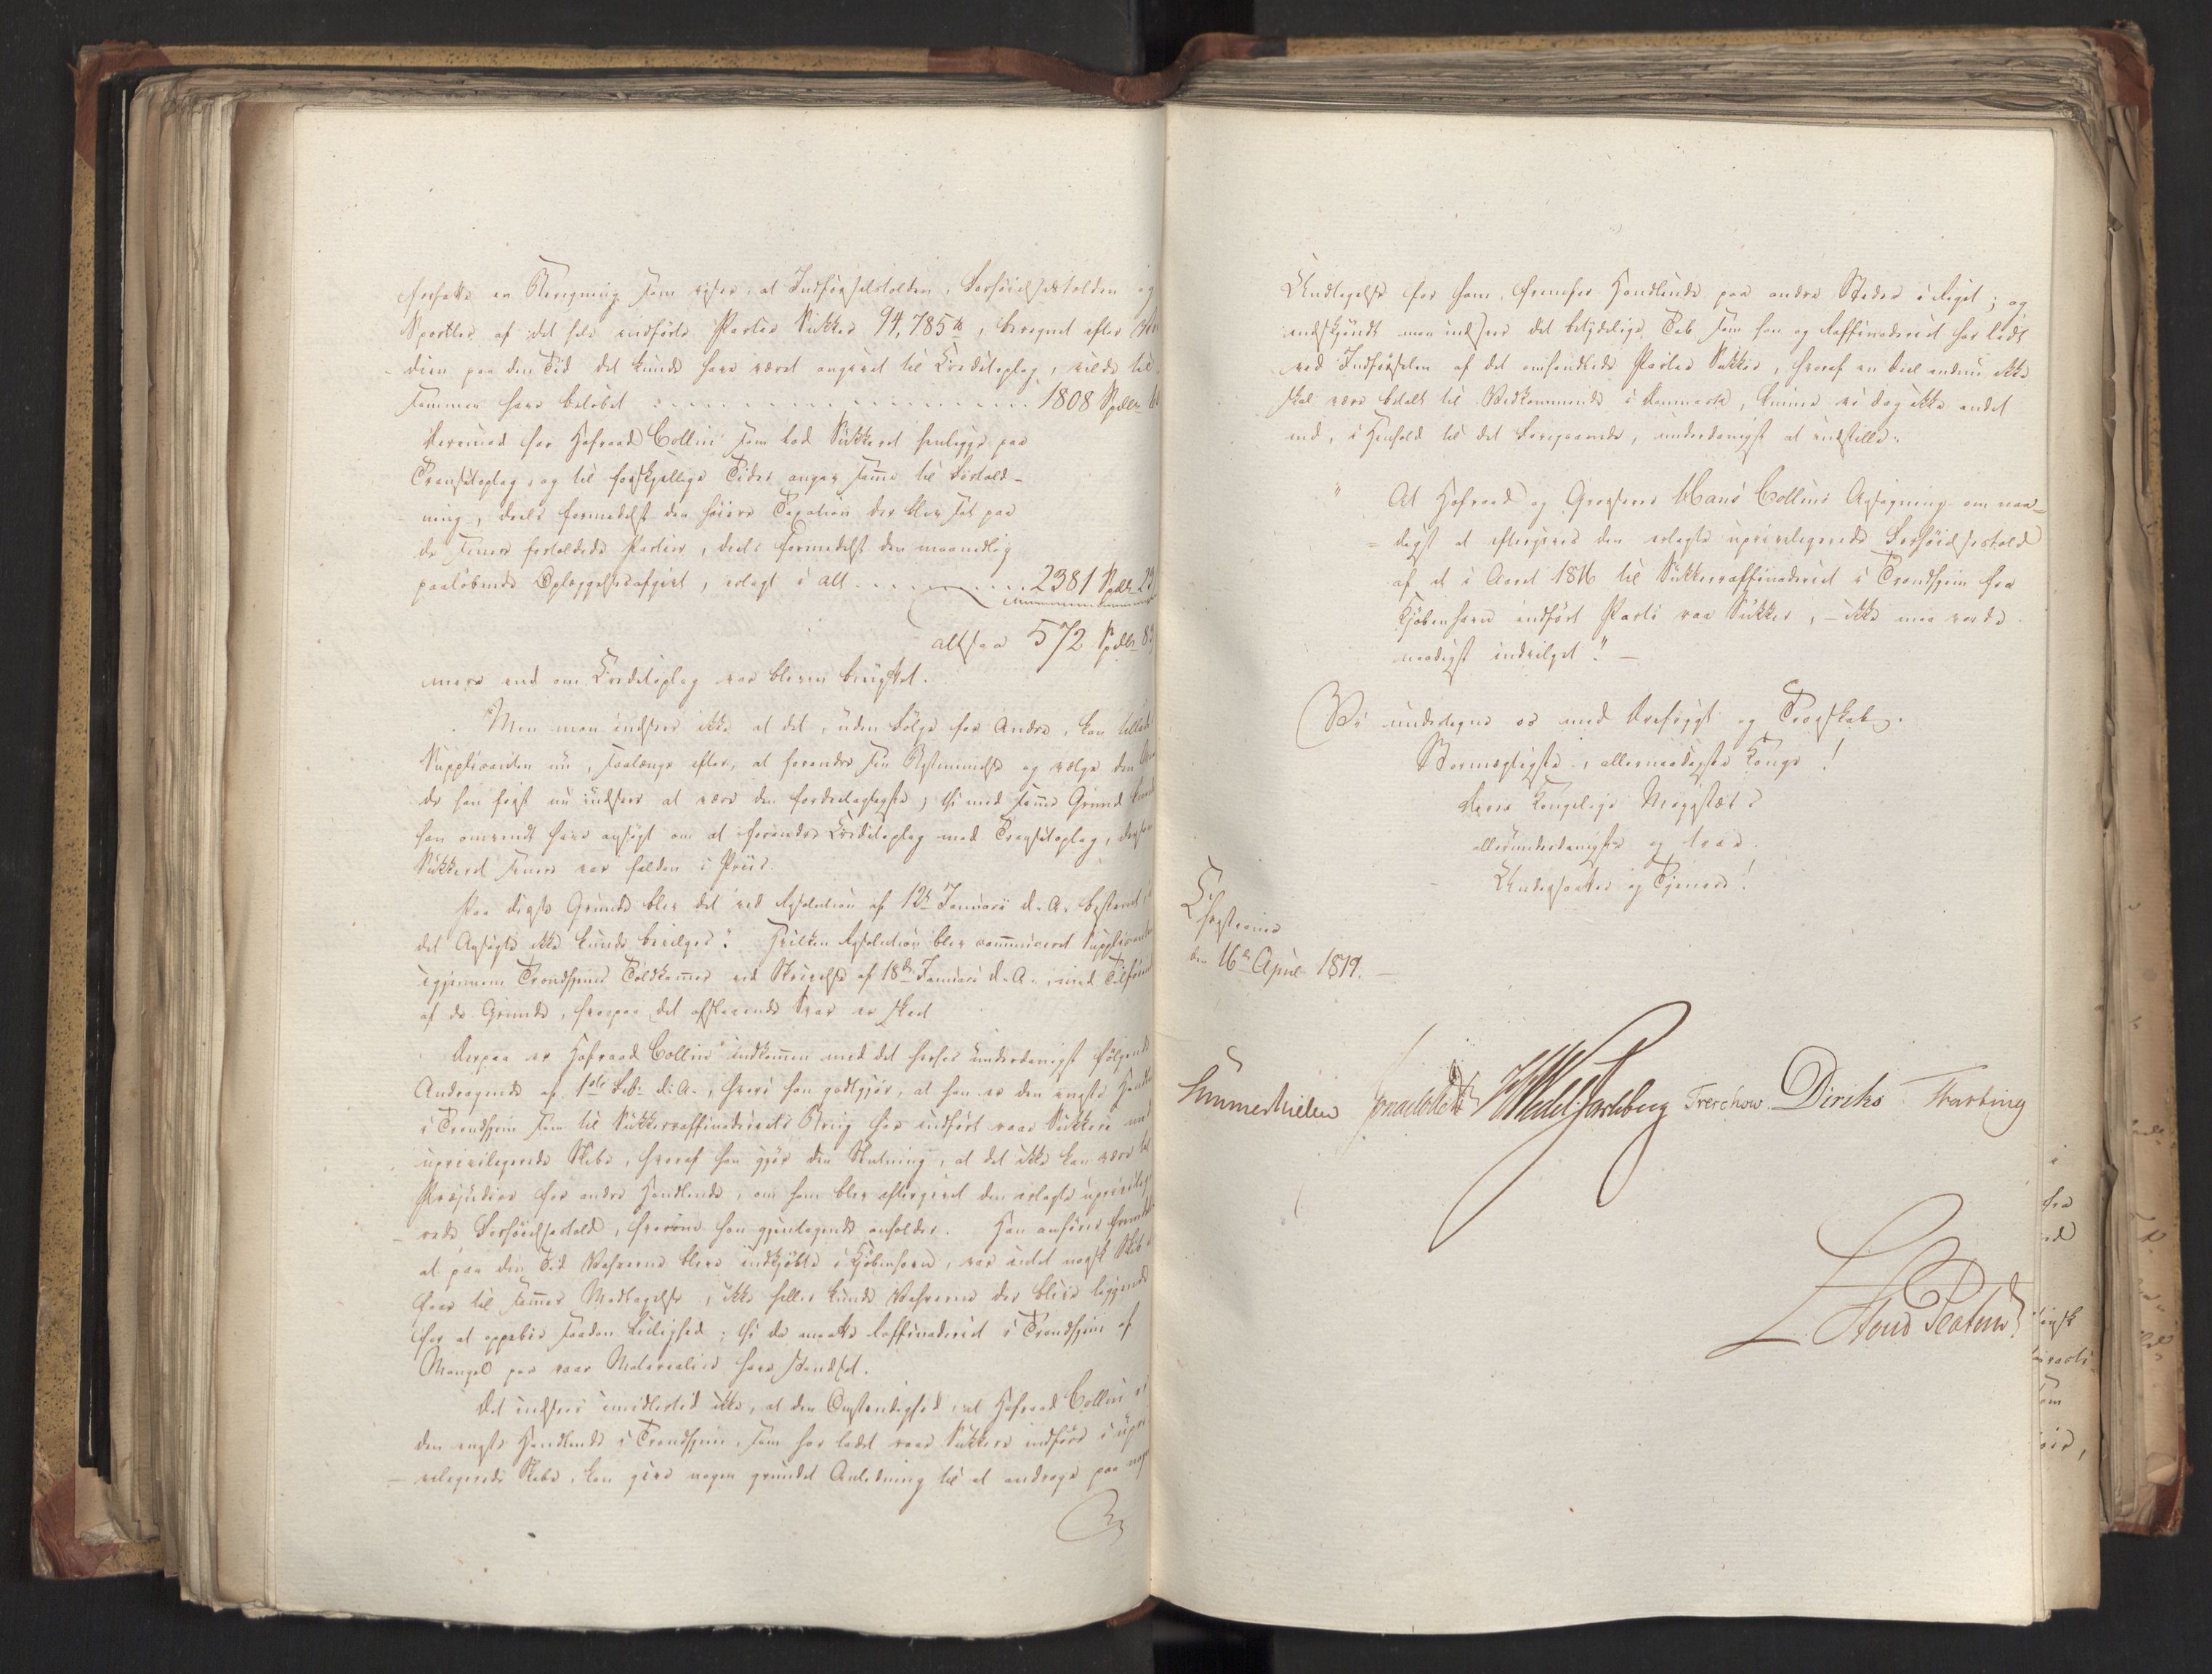 forfattet en Beregning som viser, at Indførselstolden, Forhøielsestolden og
Sportler af det hele indførte Partie Sukker 94,785 ℔, beregnet efter
dien paa den Tid det kunde have været angivet til Creditoplag, vilde til
sammen have beløbet . . . . . . 1808 Spdlr
Derimod har Hofraad Collin som lod Sukkeret henligge paa
Transitoplag, og til forskjellige Tider angav samme til Fortold-
ning, deels formedelst den høiere Taxation der blev sat paa
de senere fortoldede Partier, deels formedelst den maanedlig
paaløbende Oplagsafgivt, erlagt i alt . . . . . 2381 Spdlr 23
altsaa 572 Spdlr 83
mere end om Creditoplag var bleven benyttet.
Men man indseer ikke at det, uden Følge for Andre, kan tillades
Supplicanten nu, saalænge efter, at forandre sin Bestemmelse og vælge den
der han først nu indseer at være den fordeelagtigste; thi med samme Grund kunde
han omvendt have ansøgt om at forandre Creditoplag med Transitoplag, dersom
Sukkeret senere var falden i Priis.
Paa disse Grunde blev det ved Resolution af 12te Januarii d. A. bestemt,
det Ansøgte ikke kunde bevilges". Hvilken Resolution blev communiceret Supplicanten
igjennem Trondhjems Toldkammer ved Skrivelse af 18de Januarii d. A., med Tilføiende
af de Grunde, hvorpaa det afslaaende Svar er skeet
Derpaa er Hofraad Collin indkommen med det herhos underdanigst følgende
Andragende af 1ste Feb. d. A., hvori han godtgjør, at han er den eneste Handlende
i Trondhjem som til Sukkerraffinaderiets Brug har indført raae Sukkere med
uprivilegerede Skibe, hvoraf han gjør den Slutning, at det ikke kan være til
Præjudice for andre Handlende, om ham blev eftergivet den erlagte uprivilege
rede Forhøielsestold, hvorom han gjentagende anholder. Han anfører fremdeles
at paa den Tid Vahrerne bleve indkjøbte i Kjøbenhavn, var intet norsk Skib
der til sammes Modtagelse, ikke heller kunde Vahrerne der blive liggende
for at oppebie saadan Leilighed; thi da maatte Raffinaderiet i Trondhjem af
Mangel paa raae Materialier have standset.
Det indsees imidlertid ikke, at den Omstændighed, at Hofraad Collin er
den eneste Handlende i Trondhjem, som har ladet raae Sukkere indføre i upri
vilegerede Skibe, kan give nogen grundet Anledning til at andrage paa nogen
Undtagelse for ham, fremfor Handlende paa andre Steder i Riget; og
endskjøndt man indseer det betydelige Tab som han og Raffinaderiet har lidt
ved Indførselen af det omhandlede Partie Sukker, hvoraf en Deel endnu ikke
skal være betalt til Vedkommende i Danmark, kunne vi dog ikke andet
end, i Henhold til det Foregaaende, underdanigst at indstille:
"At Hofraad og Grosserer Hans Collins Ansøgning om naa-
digst at eftergives den erlagte uprivilegerede Forhøielsestold
af et i Aaret 1816 til Sukkerraffinaderiet i Trondhjem fra
Kjøbenhavn indført Parti raa Sukker, – ikke maa vorde
naadigst indvilget". –
Vi undertegne os med Ærefrygt og Troskab.
Stormægtigste, allernaadigste Konge!
Deres Kongelige Majestæts
allerunderdanigste og troe
Undersaatter og Tjenere!
Christiania
den 16de April 1819. –
Sommerhielm Jonas Collett HWedel Jarlsberg Treschow Diriks Fasting